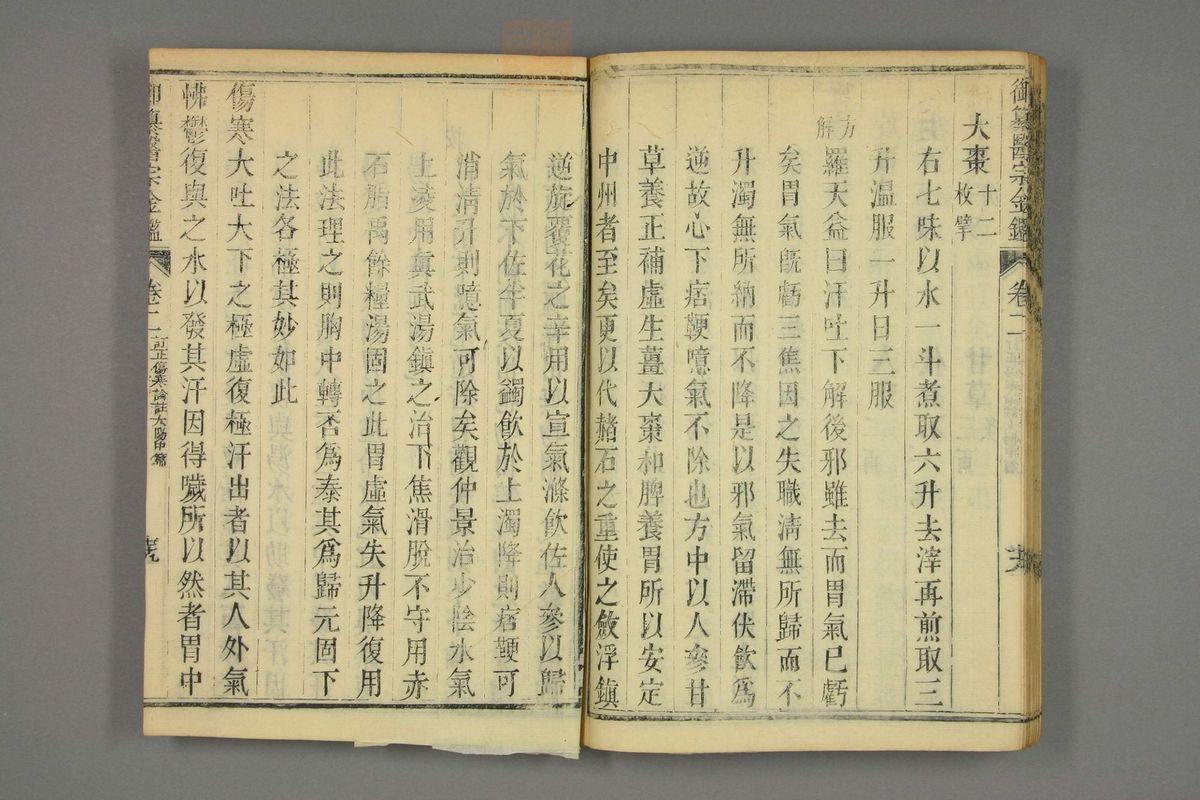 御纂醫宗金鑑 卷二
大棗十二枚擘
右七味以水一斗煮取六升去滓再煎取三
升温服一升日三服
方解
羅天益曰汗吐下解後邪雖去而胃氣已虧
矣胃氣旣虧三焦因之失職清無所歸而不
升濁無所納而不降是以邪氣留滯伏飲爲
逆故心下痞鞕噫氣不除也方中以人參甘
草養正補虛生薑大棗和脾養胃所以安定
中州者至矣更以代赭石之重使之斂浮鎮
逆旋覆花之辛用以宣氣滌飲佐人參以歸
氣於下佐半夏以蠲飲於上濁降則痞鞕可
消清升則噫氣可除矣觀仲景治少陰水氣
上凌用眞武湯鎮之治下焦滑脫不守用赤
石脂禹餘糧湯固之此胃虛氣失升降復用
此法理之則胸中轉否爲泰其爲歸元固下
之法各極其妙如此
傷寒大吐大下之極虛復極汗出者以其人外氣
怫鬱復與之水以發其汗因得噦所以然者胃中
御纂醫宗金鑑 卷二 訂正傷寒論註太陽中篇